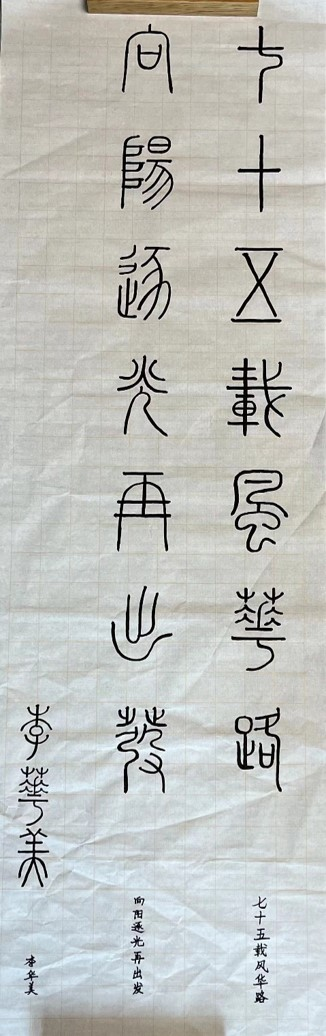 七十五載風華路
七十五载风华路
向陽逐光再出發
向阳逐光再出发
李華美
李华美